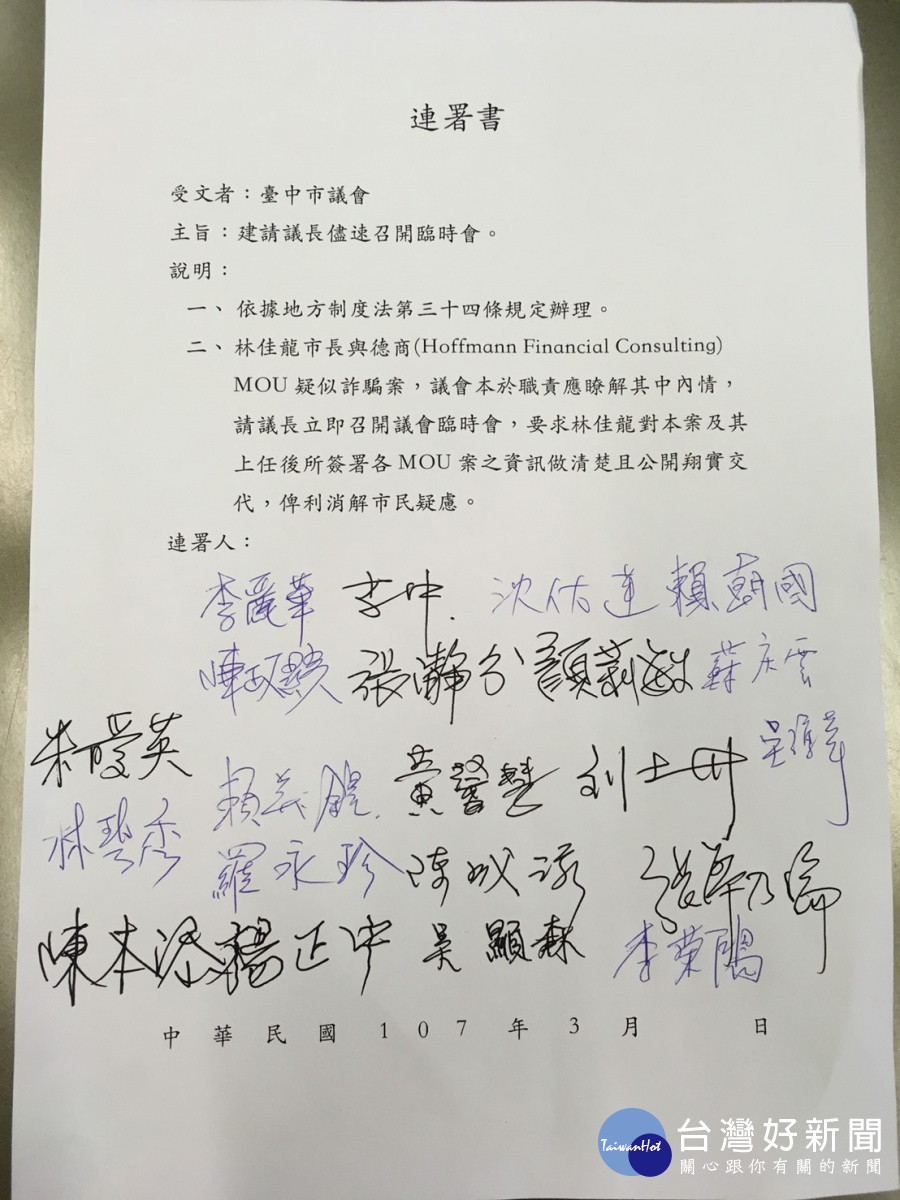 連署書
受文者：臺中市議會
主旨：建請議長儘速召開臨時會。
說明：
一、依據地方制度法第三十四條規定辦理。
二、林佳龍市長與德商(Hoffmann Financial Consulting)
MOU 疑似詐騙案，議會本於職責應瞭解其中內情，
請議長立即召開議會臨時會，要求林佳龍對本案及其
上任後所簽署各 MOU 案之資訊做清楚且公開翔實交
代，俾利消解市民疑慮。
連署人：
李麗華 李中 沈佑蓮 賴朝國
張瀞分 顏莉敏 蘇慶雲
朱暖英 賴義鍠 黃馨慧 劉士州
林碧秀 羅永珍 陳成添 張廖乃綸
陳本添 楊正中 吳顯森 李榮鴻
中華民國107年3月 日
TaiwanHot
台灣好新聞
關心跟你有關的新聞